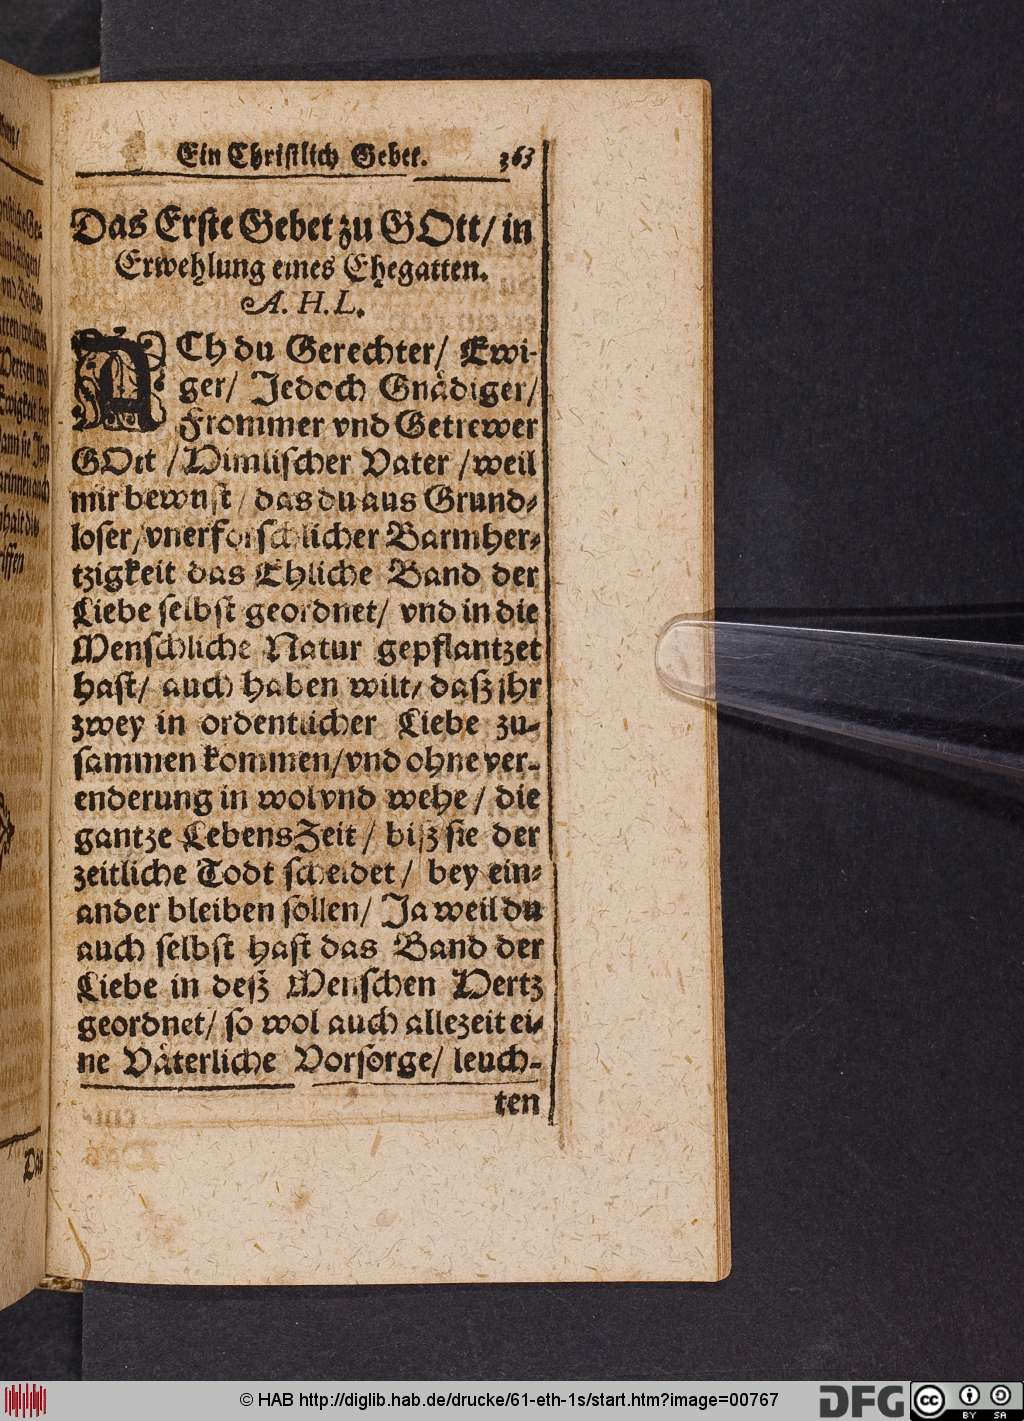 Ein Christlich Gebet. 363
Das Erste Gebet zu GOtt/ in
Erwehlung eines Ehegatten.
A. H. L.
ACh du Gerechter/ Ewi-
ger/ Jedoch Gnädiger/
Frommer vnd Getrewer
GOtt / Himlischer Vater / weil
mir bewust / das du aus Grund-
loser/ vnerforschlicher Barmher-
tzigkeit das Ehliche Band der
Liebe selbst geordnet/ vnd in die
Menschliche Natur gepflantzet
hast/ auch haben wilt/ dasz jhr
zwey in ordentlicher Liebe zu-
sammen kommen/ vnd ohne ver-
enderung in wol vnd wehe / die
gantze LebensZeit / bisz sie der
zeitliche Todt scheidet / bey ein-
ander bleiben sollen/ Ja weil du
auch selbst hast das Band der
Liebe in desz Menschen Hertz
geordnet/ so wol auch allezeit ei-
ne Väterliche Vorsorge/ leuch-
ten
Das
© HAB http://diglib.hab.de/drucke/61-eth-1s/start.htm?image=00767
DFG
cc BY SA